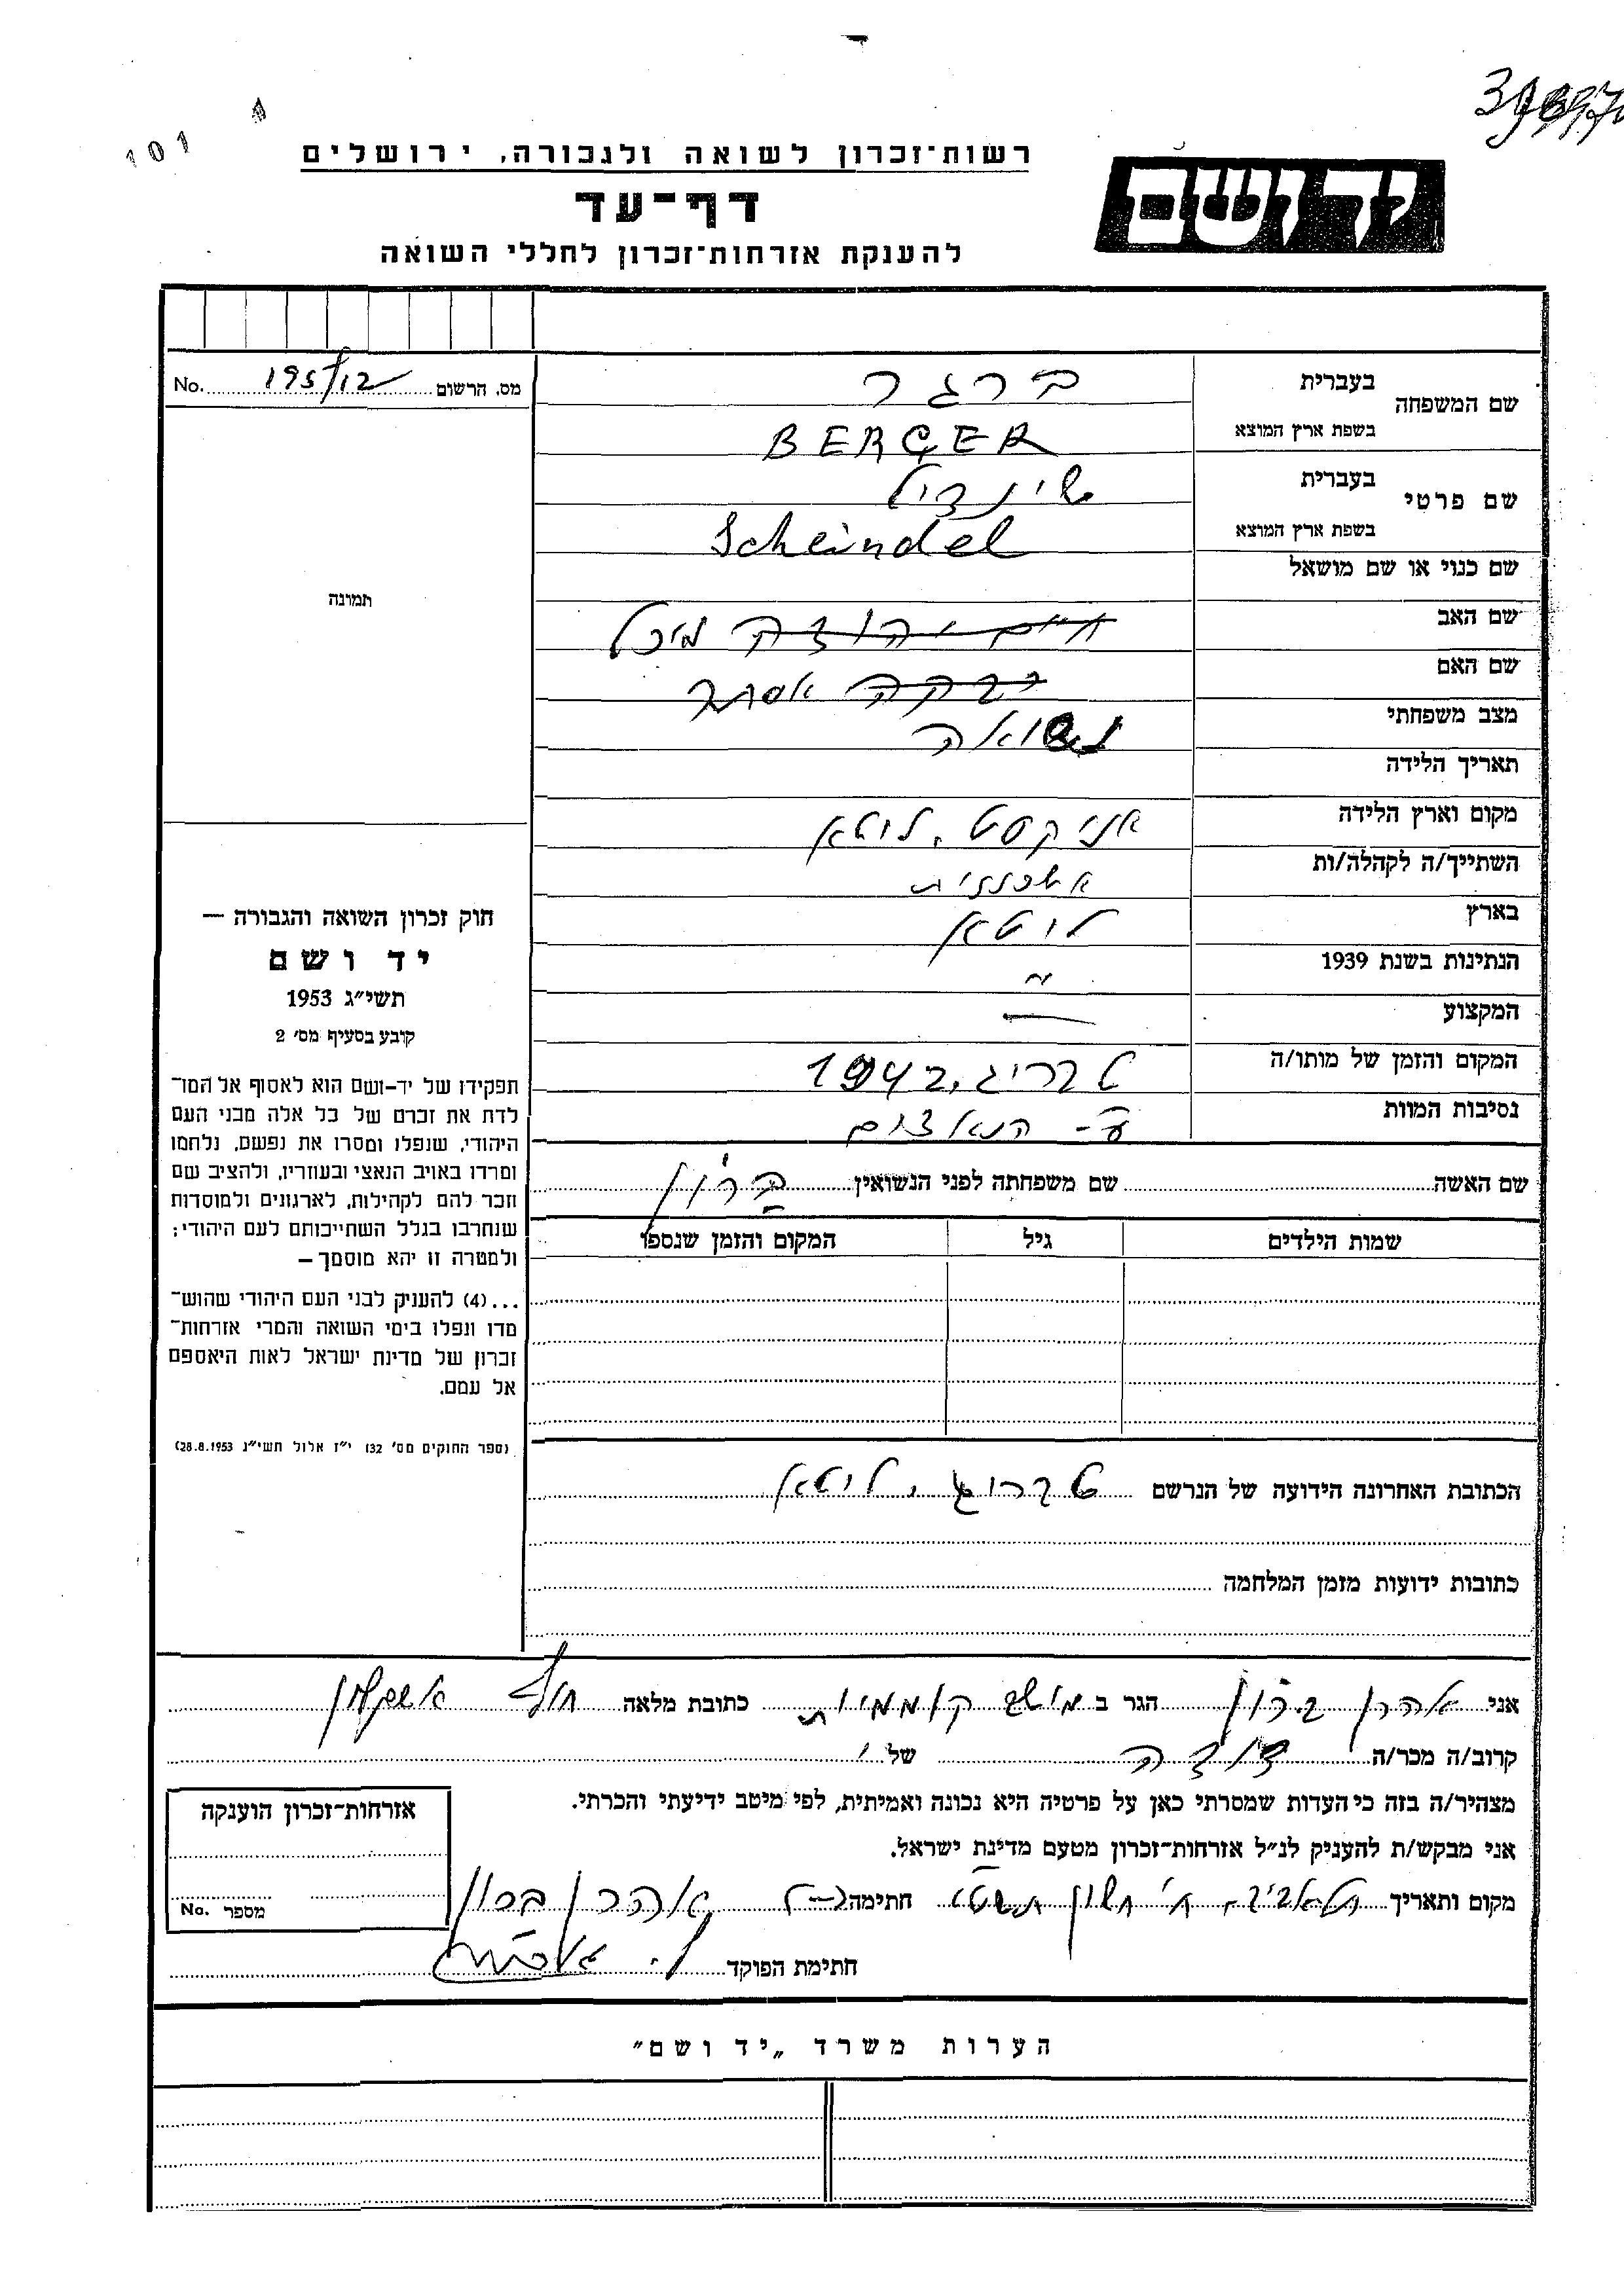 101
רשות־זכרון לשואה ולגבורה, ירושלים
יד ושם
דף־עד
להענקת אזרחות־זכרון לחללי השואה
מס. הרשום 195/12 No.
שם המשפחה
בעברית ברגר
בשפת ארץ המוצא BERGER
שם פרטי
בעברית שינדיל
בשפת ארץ המוצא Scheindel
שם כנוי או שם מושאל
שם האב חיים יהודה מיכל
שם האם רבקה אסתר
מצב משפחתי נשואה
תאריך הלידה
מקום וארץ הלידה אניקסט, ליטא
השתייך/ה לקהלה/ות אשכנזית
בארץ ליטא
הנתינות בשנת 1939 "
המקצוע —
המקום והזמן של מותו/ה טבריג, 1942
נסיבות המוות ע"י הנאצים
שם האשה שם משפחתה לפני הנשואין ברון
שמות הילדים גיל המקום והזמן שנספו
הכתובת האחרונה הידועה של הנרשם טברוג, ליטא
כתובות ידועות מזמן המלחמה
תמונה
חוק זכרון השואה והגבורה —
יד ושם
תשי״ג 1953
קובע בסעיף מס׳ 2
תפקידו של יד-ושם הוא לאסוף אל המו־
לדת את זכרם של כל אלה מבני העם
היהודי, שנפלו ומסרו את נפשם, נלחמו
ומרדו באויב הנאצי ובעוזריו, ולהציב שם
וזכר להם לקהילות, לארגונים ולמוסדות
שנחרבו בגלל השתייכותם לעם היהודי;
ולמטרה זו יהא מוסמך —
...(4) להעניק לבני העם היהודי שהוש־
מדו ונפלו בימי השואה והמרי אזרחות־
זכרון של מדינת ישראל לאות היאספם
אל עמם.
(ספר החוקים מס׳ 132 י״ז אלול תשי״ג 28.8.1953)
אני אהרן ברון הגר ב מושב קוממיות כתובת מלאה חוף אשקלון
קרוב/ה מכר/ה דודה של
מצהיר/ה בזה כי העדות שמסרתי כאן על פרטיה היא נכונה ואמיתית, לפי מיטב ידיעתי והכרתי.
אני מבקש/ת להעניק לנ״ל אזרחות־זכרון מטעם מדינת ישראל.
מקום ותאריך חשון חתימה אהרן ברון
חתימת הפוקד
אזרחות־זכרון הוענקה
מספר No.
הערות משרד „יד ושם״